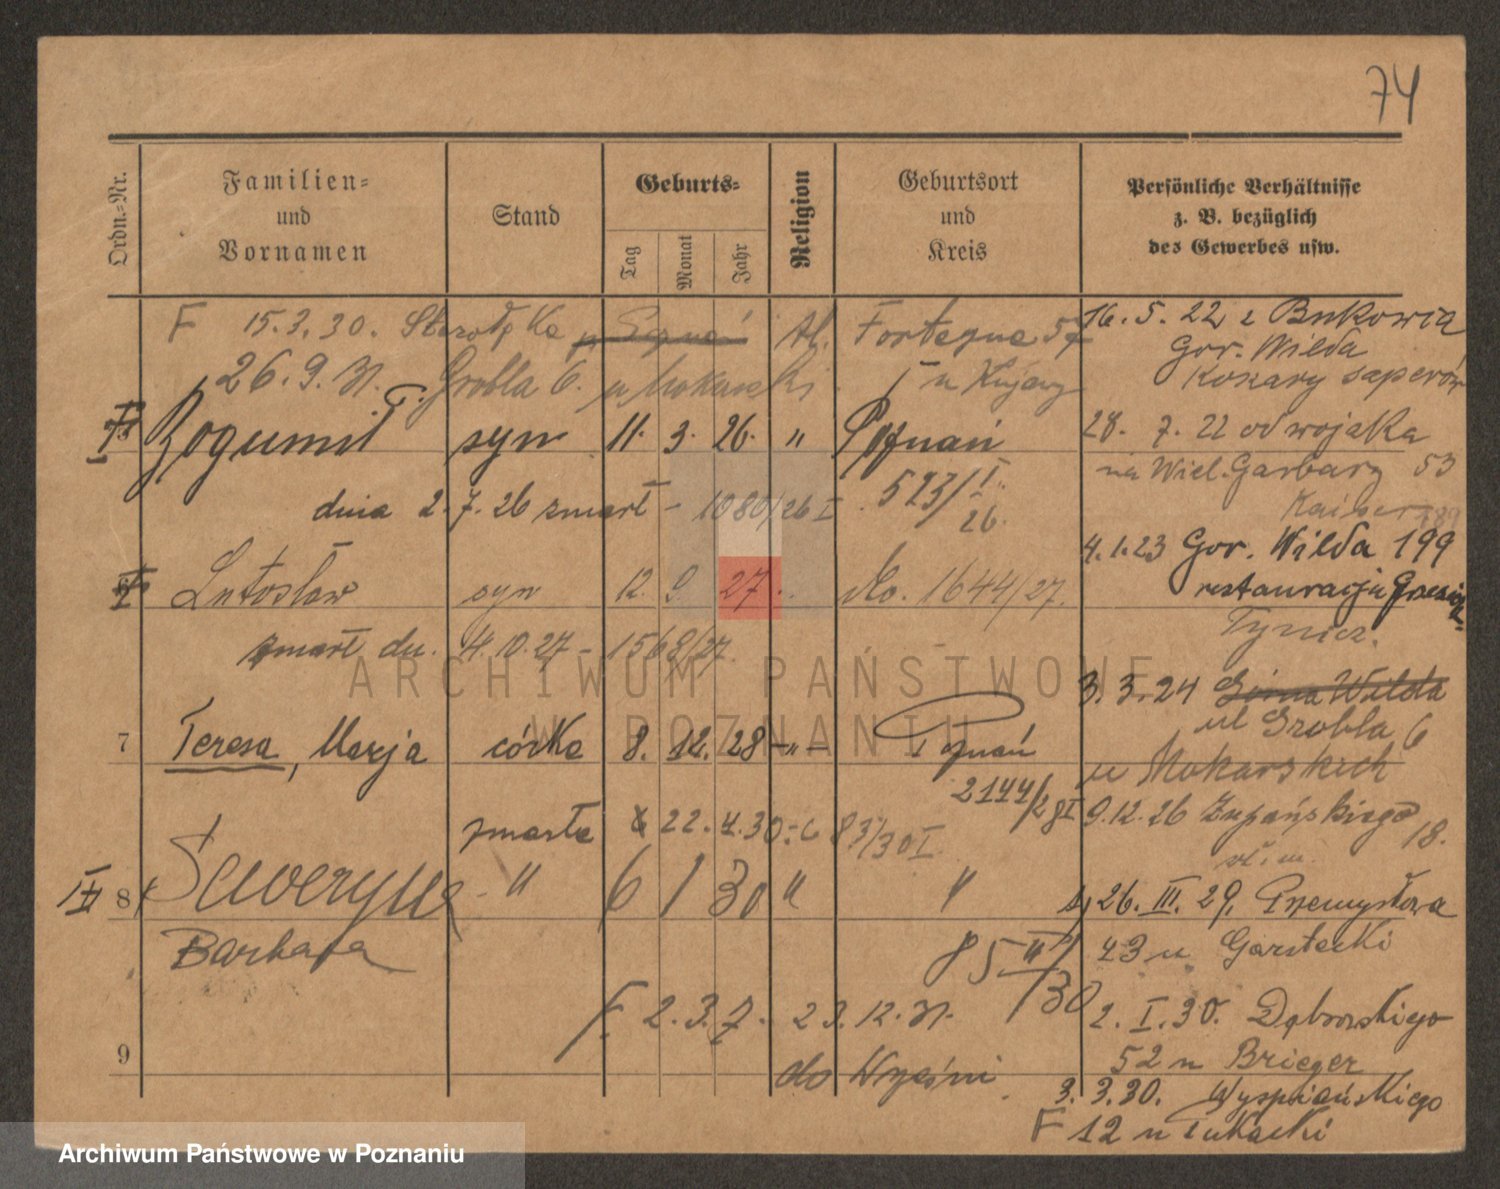 74
Ordn.-Nr.
Familien-
und
Vornamen
Stand
Geburts-
Tag
Monat
Jahr
Religion
Geburtsort
und
Kreis
Persönliche Verhältnisse
z. B. bezüglich
des Gewerbes usw.
F 15.3.30. Starołęka Al. Forteczna 57
26.9.31. Grobla 6. u Mokarski
Bogumił syn 11. 3. 26. " Poznań
523/I
26.
dnia 2.7.26 zmarł - 1080/26 I
Lutosław syn 12. 9 27 No. 1644/27.
zmarł dn. 4.10.27 - 1568/27.
7 Teresa, Marja córka 8. 12. 28 -"- Poznań
2144/28 I
zmarła 22.4.30
8 Seweryna " 6 1 30 " "
Barbara
85 II/30
F. 2.3.7. 23.12.31.
9
do Wrześni
16.5.22 z Bukowca
Gor. Wilda
Koszary saperów
28. 7. 22 od wojska
na Wiel. Garbary 53
4.1.23 Gor. Wilda 199
restauracja
3.3.24 Górna Wilda
ul Grobla 6
u Mokarskich
9.12.26 Żupańskiego
18.
26. III. 29. Przemysłowa
43 u Garstecki
2. I. 30. Dąbrowskiego
52 u Brieger
3. 3. 30. Wyspiańskiego
F 12 u Łukacki
ARCHIWUM PAŃSTWOWE
W POZNANIU
Archiwum Państwowe w Poznaniu